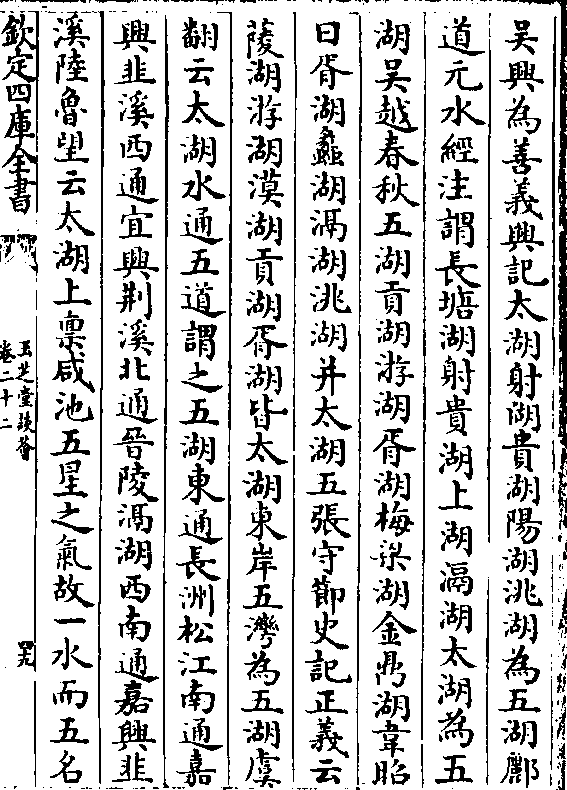 吳興為善義興記太湖射湖貴湖陽湖洮湖為五湖酈
道元水經注謂長塘湖射貴湖上湖滆湖太湖為五
湖吳越春秋五湖貢湖游湖胥湖梅梁湖金鼎湖韋昭
曰胥湖蠡湖滆湖洮湖并太湖五張守節史記正義云
菱湖游湖漠湖貢湖胥湖皆太湖東岸五灣為五湖虞
翻云太湖水通五道謂之五湖東通長洲松江南通嘉
興韭溪西通宜興荆溪北通晉陵滆湖西南通嘉興韭
溪陸魯望云太湖上禀咸池五星之氣故一水而五名
欽定四庫全書
玉芝堂談薈
卷二十二